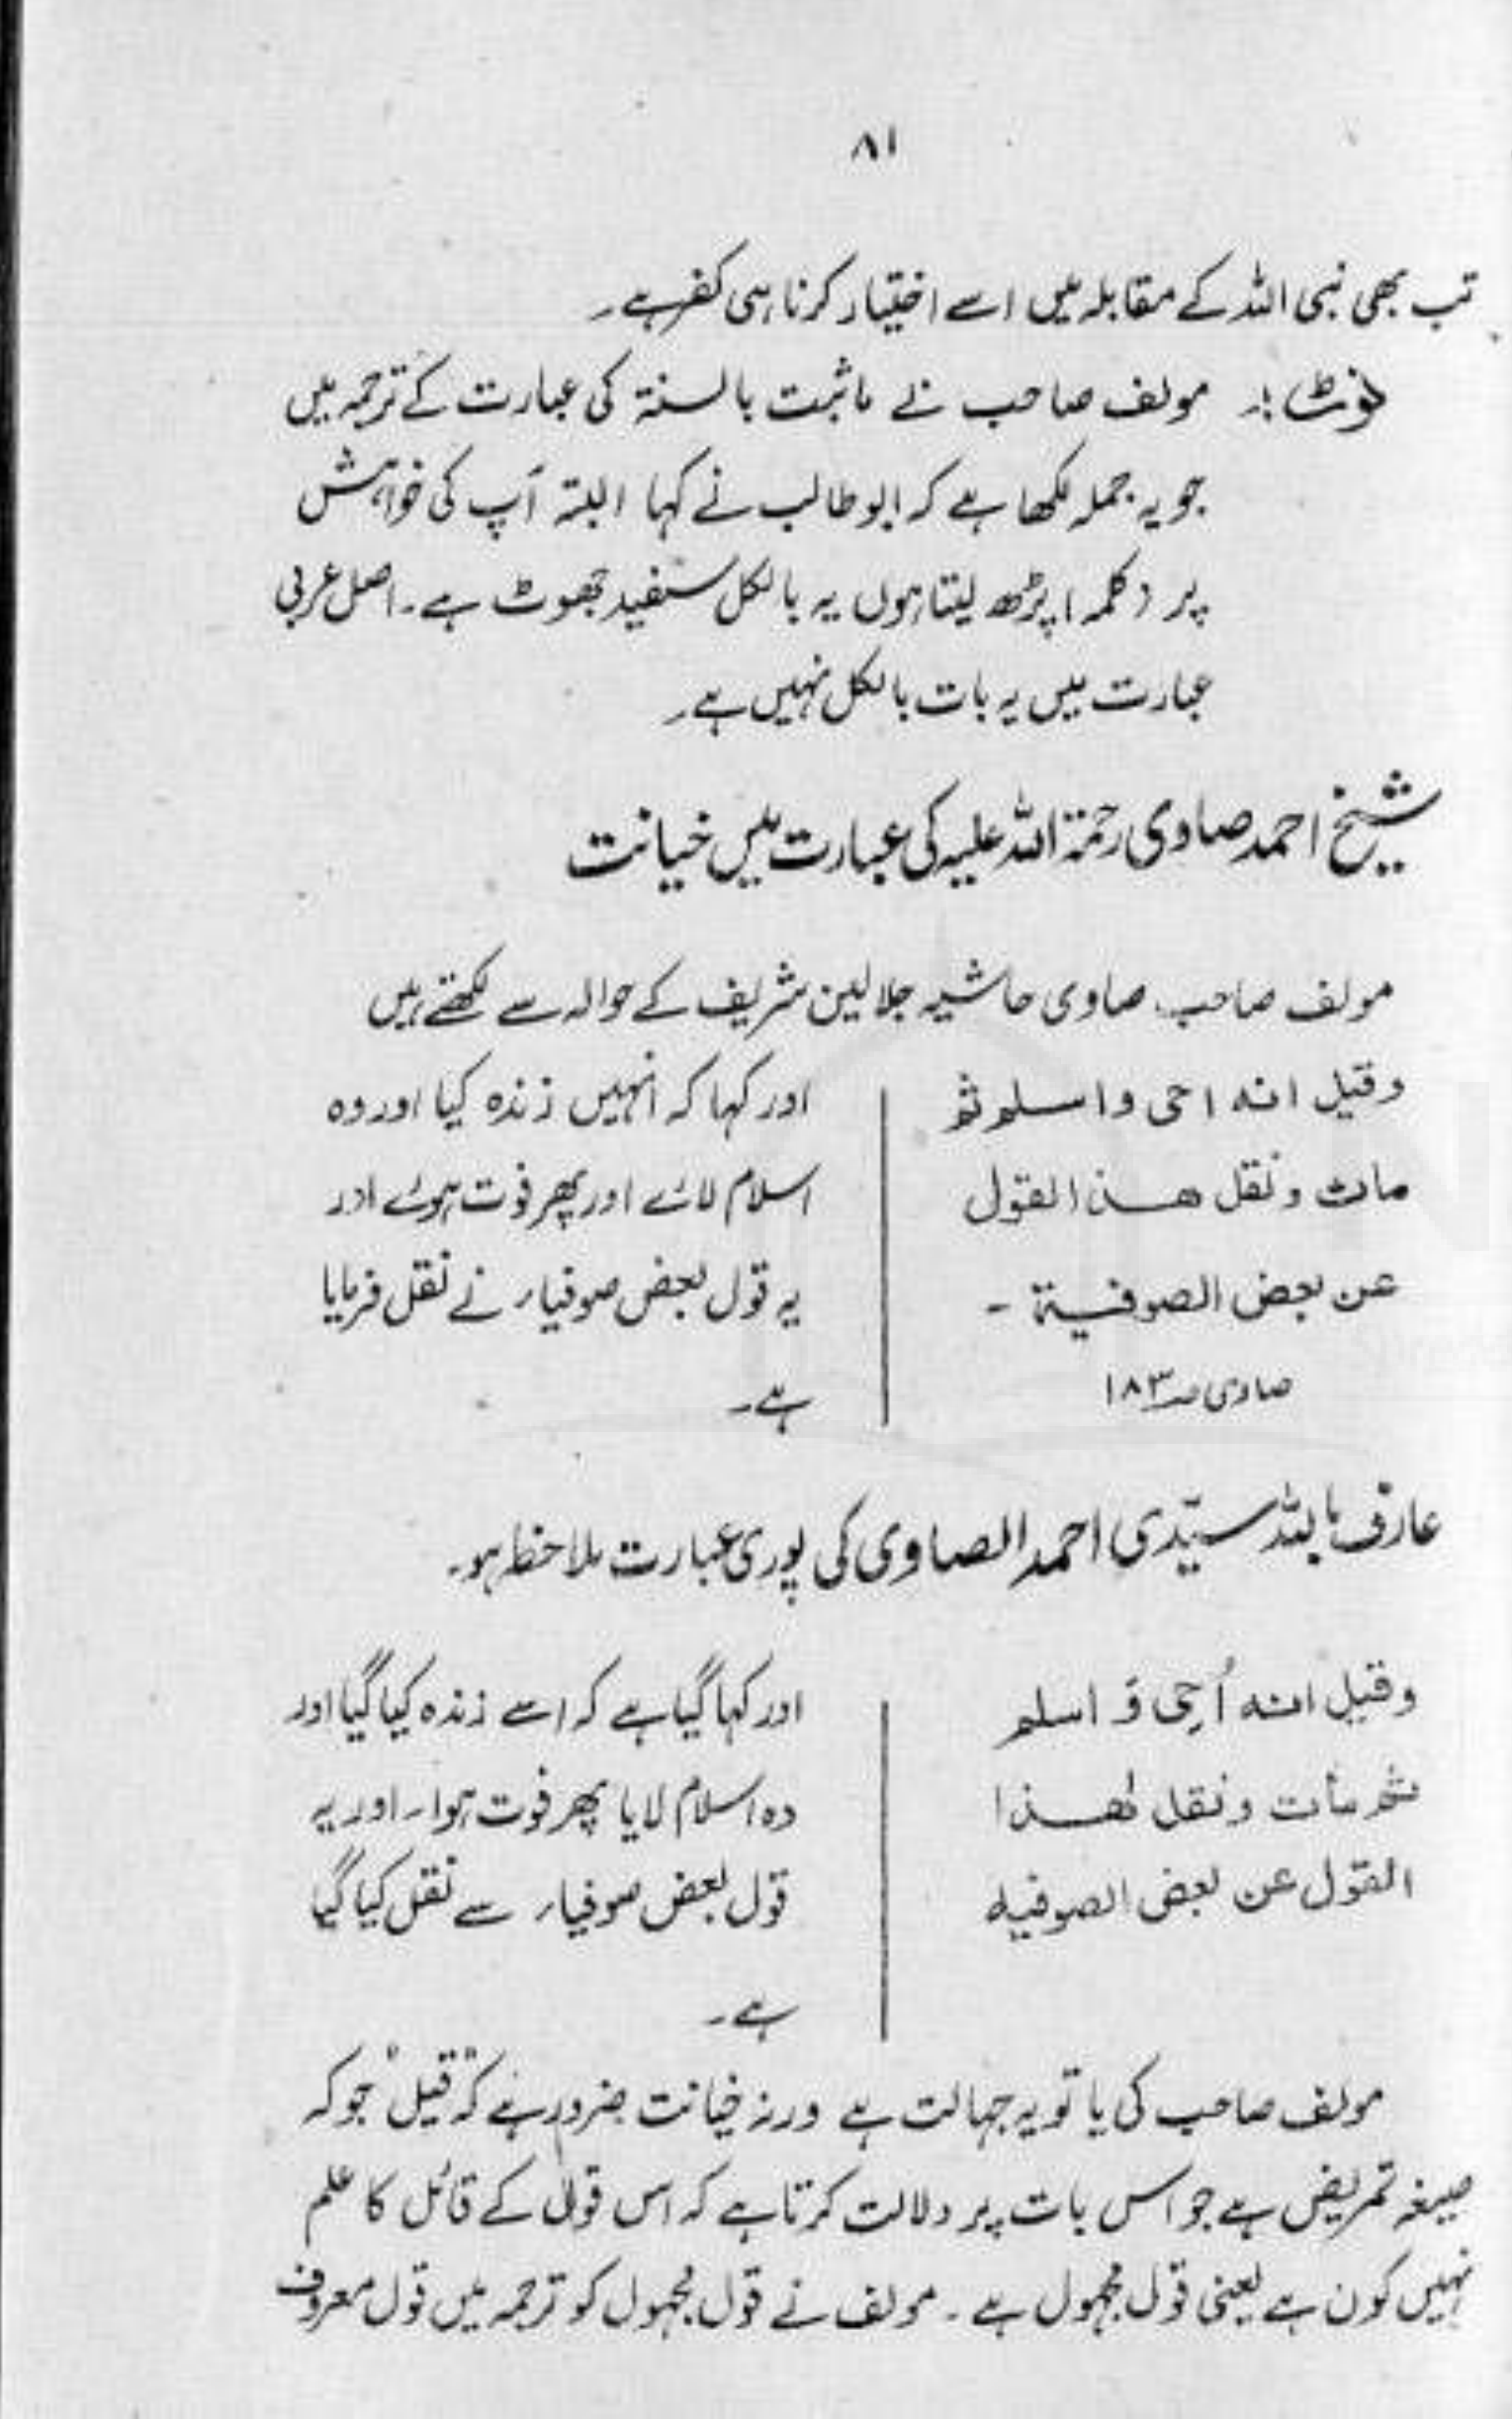 ۸۱
تب بھی نبی اللہ کے مقابلہ میں اسے اختیار کرنا ہی کفر ہے۔
نوٹ :۔ مولف صاحب نے ماثبت بالسنۃ کی عبارت کے ترجمہ میں
جو یہ جملہ لکھا ہے کہ ابو طالب نے کہا البتہ آپ کی خواہش
پر (کلمہ) پڑھ لیتا ہوں یہ بالکل سفید جھوٹ ہے۔ اصل عربی
عبارت میں یہ بات بالکل نہیں ہے۔
شیخ احمد صاوی رحمۃ اللہ علیہ کی عبارت میں خیانت
مولف صاحب صاوی حاشیہ جلالین شریف کے حوالہ سے لکھتے ہیں
وقیل انه احی واسلم ثم
مات ونقل هذا القول
عن بعض الصوفیة -
صاوی صـ۱۸۳
اور کہا کہ انہیں زندہ کیا اور وہ
اسلام لائے اور پھر فوت ہوئے اور
یہ قول بعض صوفیاء نے نقل فرمایا
ہے۔
عارف باللہ سیّدی احمد الصاوی کی پوری عبارت ملاحظہ ہو۔
وقیل انه اُحِی وَ اسلم
ثم مات ونقل هٰذا
القول عن بعض الصوفیه
اور کہا گیا ہے کہ اسے زندہ کیا گیا اور
وہ اسلام لایا پھر فوت ہوا۔ اور یہ
قول بعض صوفیاء سے نقل کیا گیا
ہے۔
مولف صاحب کی یا تو یہ جہالت ہے ورنہ خیانت ضرور ہے کہ "قیل" جو کہ
صیغہ تمریض ہے جو اس بات پر دلالت کرتا ہے کہ اس قول کے قائل کا علم
نہیں کون ہے یعنی قول مجہول ہے۔ مولف نے قول مجہول کو ترجمہ میں قول معروف